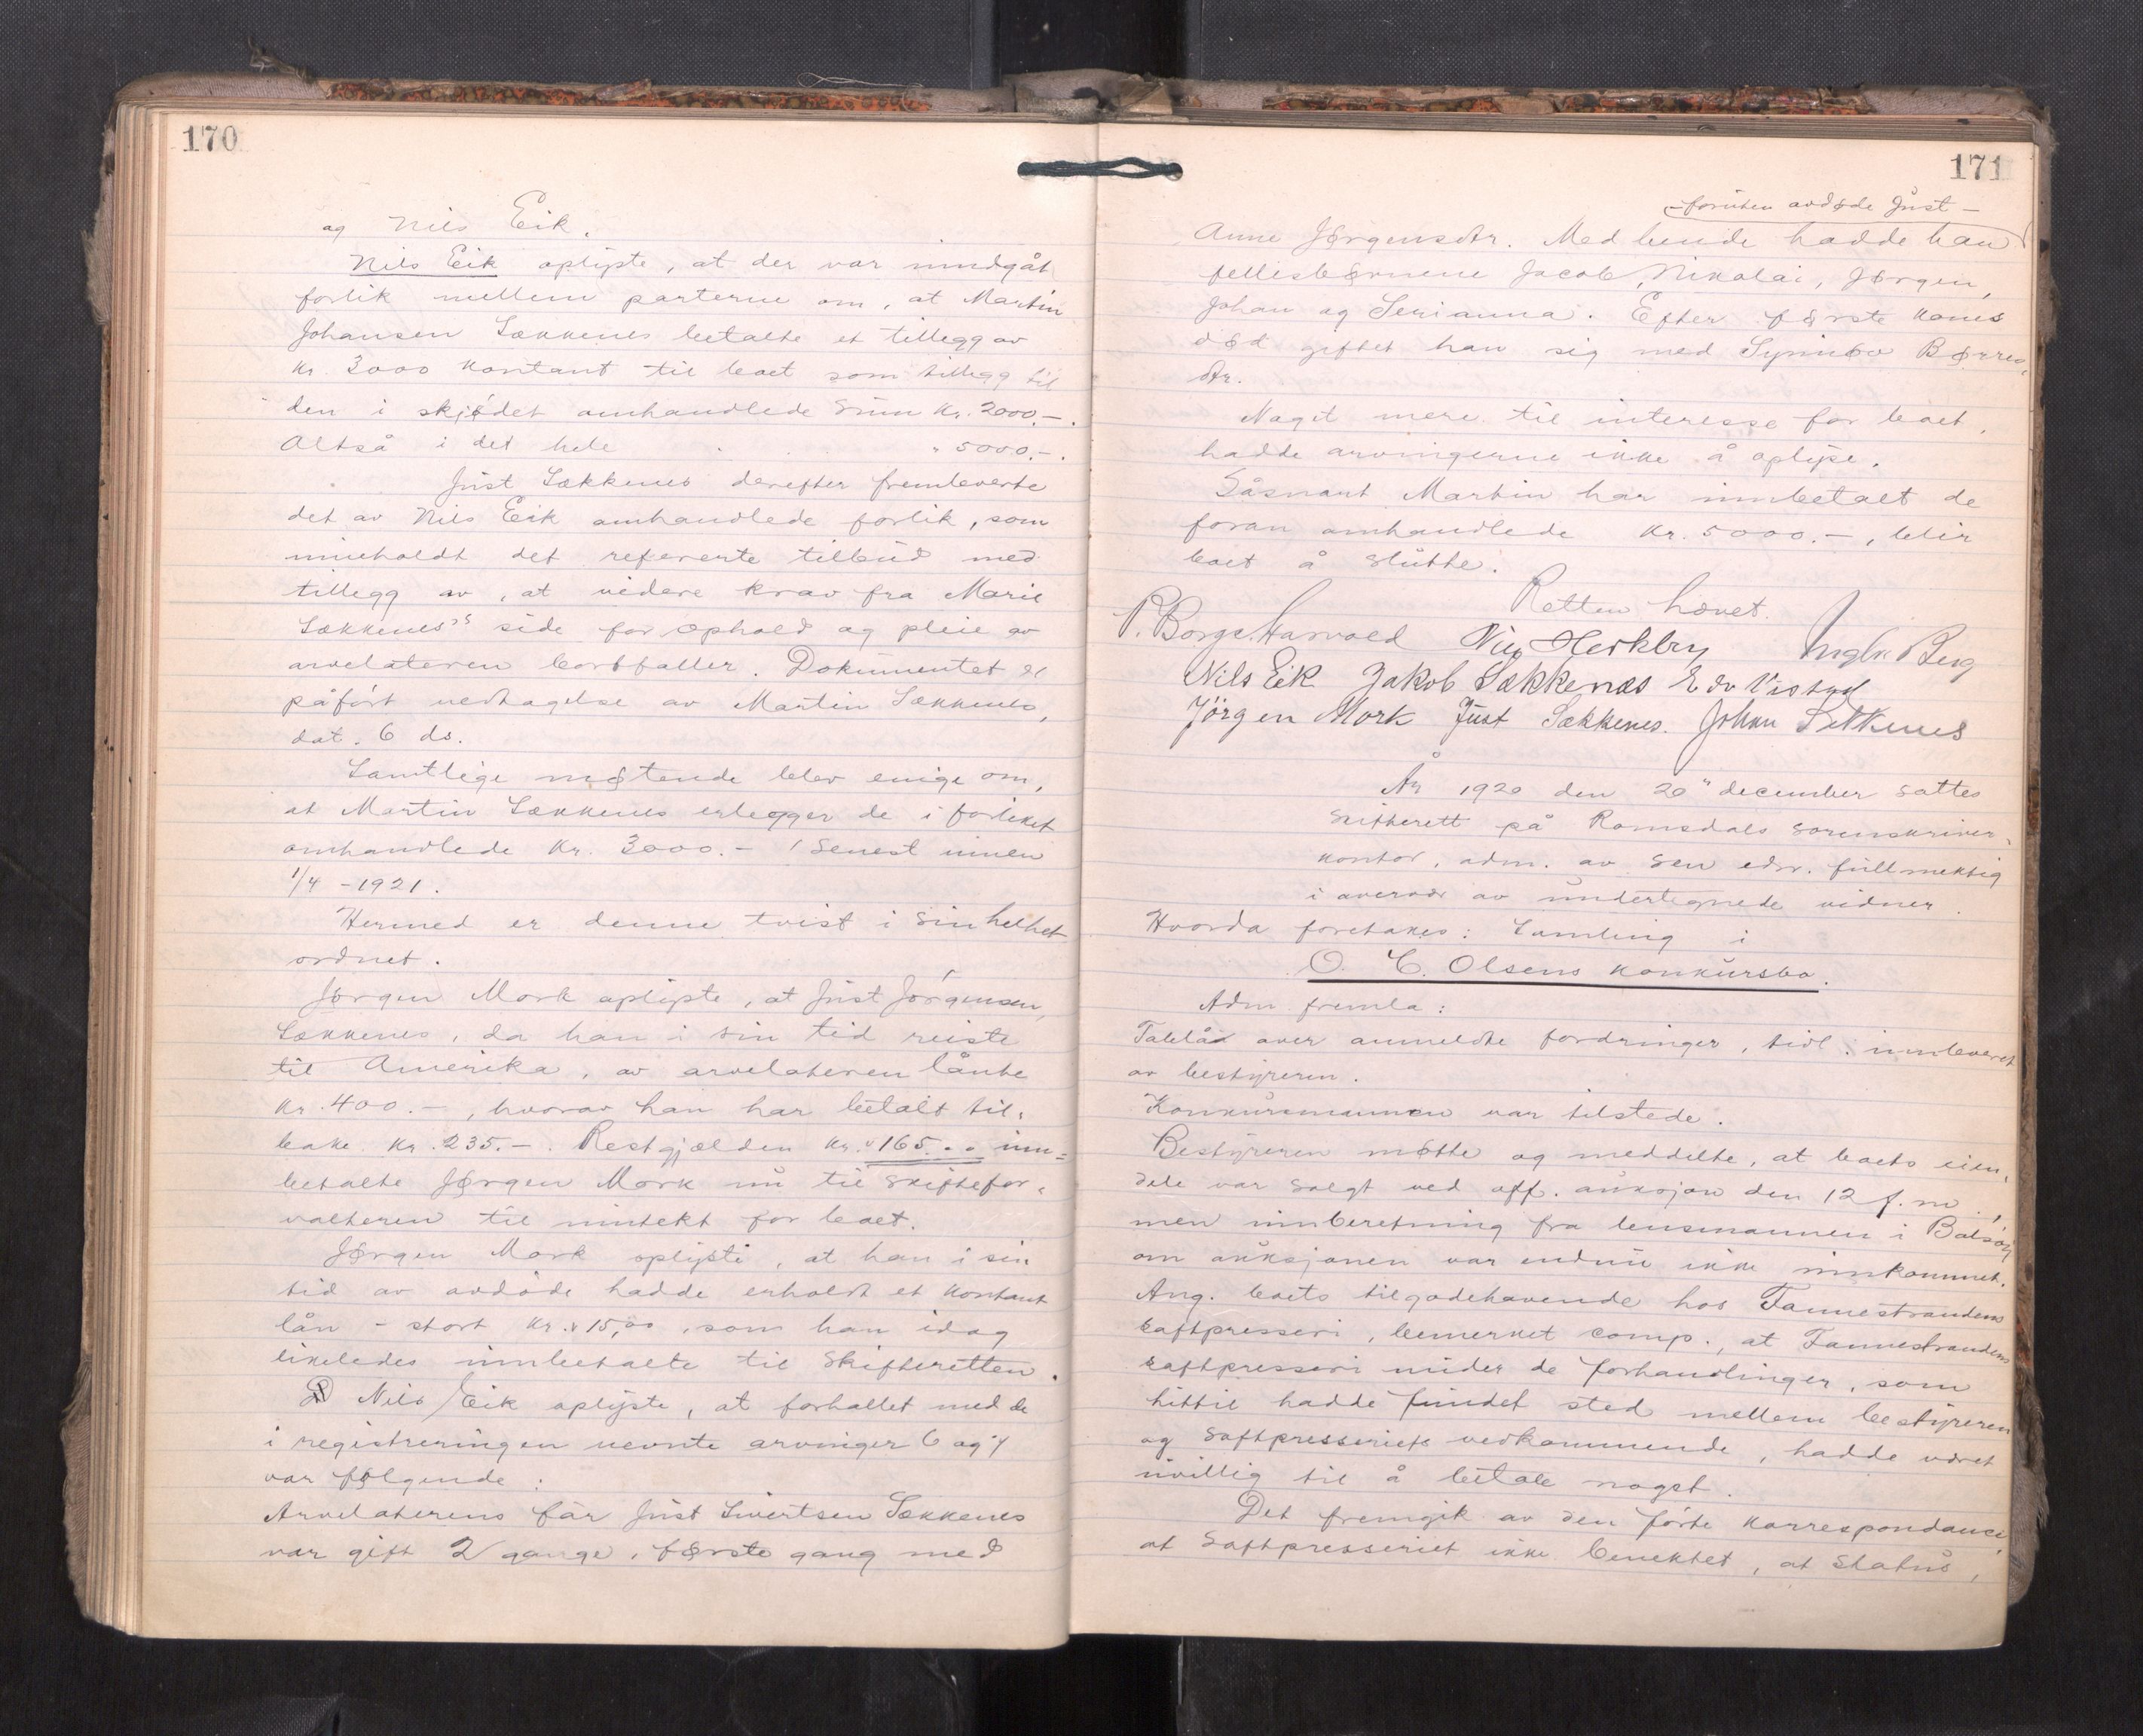 170
og Nils Eik.
Nils Eik oplyste, at der var inndgåt
forlik mellem parterne om, at Martin
Johansen Sækkenes betalte et tillegg av
kr. 3000 kontant til boet som tillegg til
den i skjødet omhandlede sum kr. 2000.-.
Altså i det hele " 5000.-.
Just Sækkenes derefter fremleverte
det av Nils Eik omhandlede forlik, som
inneholdt det refererte tilbud med
tillegg av, at videre krav fra Marie
Sækkenes's side for ophold og pleie av
arvelateren bortfaller. Dokumentet er
påført vedtagelse av Martin Sækkenes,
dat. 6 ds.
Samtlige møtende blev enige om,
at Martin Sækkenes erlegger de i forliket
omhandlede kr. 3000.- senest innen
1/4 -1921.
Hermed er denne tvist i sin helhet
ordnet.
Jørgen Mork oplyste, at Just Jørgensen
Sækkenes, da han i sin tid reiste
til Amerika, av arvelateren lånte
kr. 400.-, hvorav han har betalt til-
bake kr. 235.-. Restgjælden kr. 165.00 inn=
betalte Jørgen Mork nu til skiftefor-
valteren til inntekt for boet.
Jørgen Mork oplyste, at han i sin
tid av avdøde hadde erholdt et kontant
lån - stort kr. 15,00, som han idag
likeledes innbetalte til Skifteretten.
Nils Eik oplyste, at forhallet med de
i registreringen nevnte arvinger 6 og 7
var følgende:
Arvelaterens far Just Sivertsen Sækkenes
var gift 2 gange, første gang med
171
-foruten avdøde Just-
Anne Jørgensdtr. Med hende hadde han
fellesbørnene Jacob, Nikolai, Jørgen,
Johan og Serianna. Efter første kones
død giftet han sig med Synnøv Børres-
dtr.
Noget mere til interesse for boet,
hadde arvingerne ikke å oplyse.
Såsnart Martin har innbetalt de
foran omhandlede kr. 5000.-, blir
boet å slutte.
Retten hævet.
P. Borge Harvold Berg
Nils Eik Jakob Sækkenæs Edv Vistad
Jörgen Mork Just Sækkenes. Johan Sekkenes
År 1920 den 20" december sattes
skifterett på Romsdals sorenskriver-
kontor, adm. av den edsv. fullmektig
i overvær av undertegnede vidner.
Hvorda foretakes: Samling i
O. C. Olsens konkursbo.
Adm fremla:
Tablå over anmeldte fordringer, tidl. innleveret
av bestyreren.
Konkursmannen var tilstede.
Bestyreren møtte og meddelte, at boets eien-
dele var solgt ved off. auksjon den 12 f.m.,
men innberetning fra lensmannen i Bolsøy
om auksjonen var endnu ikke innkommet.
Ang. boets tilgodehavende hos Fannestrandens
saftpresseri, bemerket comp., at Fannestrandens
saftpresseri under de forhandlinger, som
hittil hadde fundet sted mellem bestyreren
og saftpresseriets vedkommende, hadde været
uvillig til å betale noget.
Det fremgik av den førte korrespondance,
at saftpresseriet ikke benektet, at status,